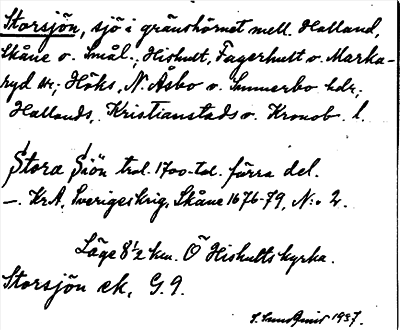 Storsjön, sjö i gränshörnet mell. Halland,
Skåne o. Smål.; Hishult, Fagerhult o. Marka-
ryd snr; Höks, N. Åsbo o. Sunnerbo hdr;
Hallands, Kristianstads o. Kronob. l.
Stora Siön trol. 1700-tal. förra del.
–. KrA, Sverigeskrig, Skåne 1676-79, N:o 2.
Läge 8½ km. Ö Hishults kyrka.
Storsjön ek, G. 9.
S. Sundqvist 1937.